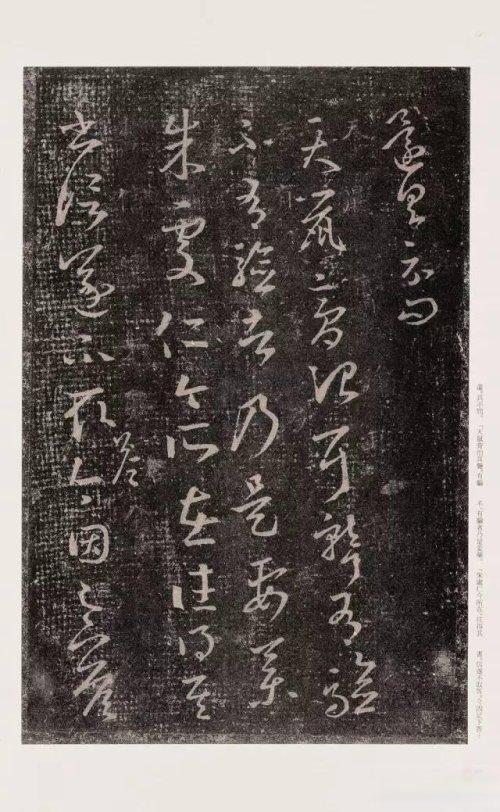 還具示問
天鼠膏治耳聾有驗
不有驗者乃是要藥
朱處仁今所在往得其
書信遂不取答今因足下答